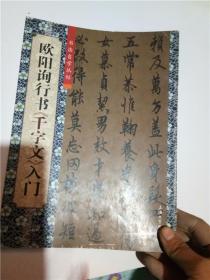 欧阳询行书《千字文》入门
賴及萬方蓋此身髮
五常恭惟鞠養豈敢
女慕貞絜男效才良知過
必改得能莫忘罔談彼短